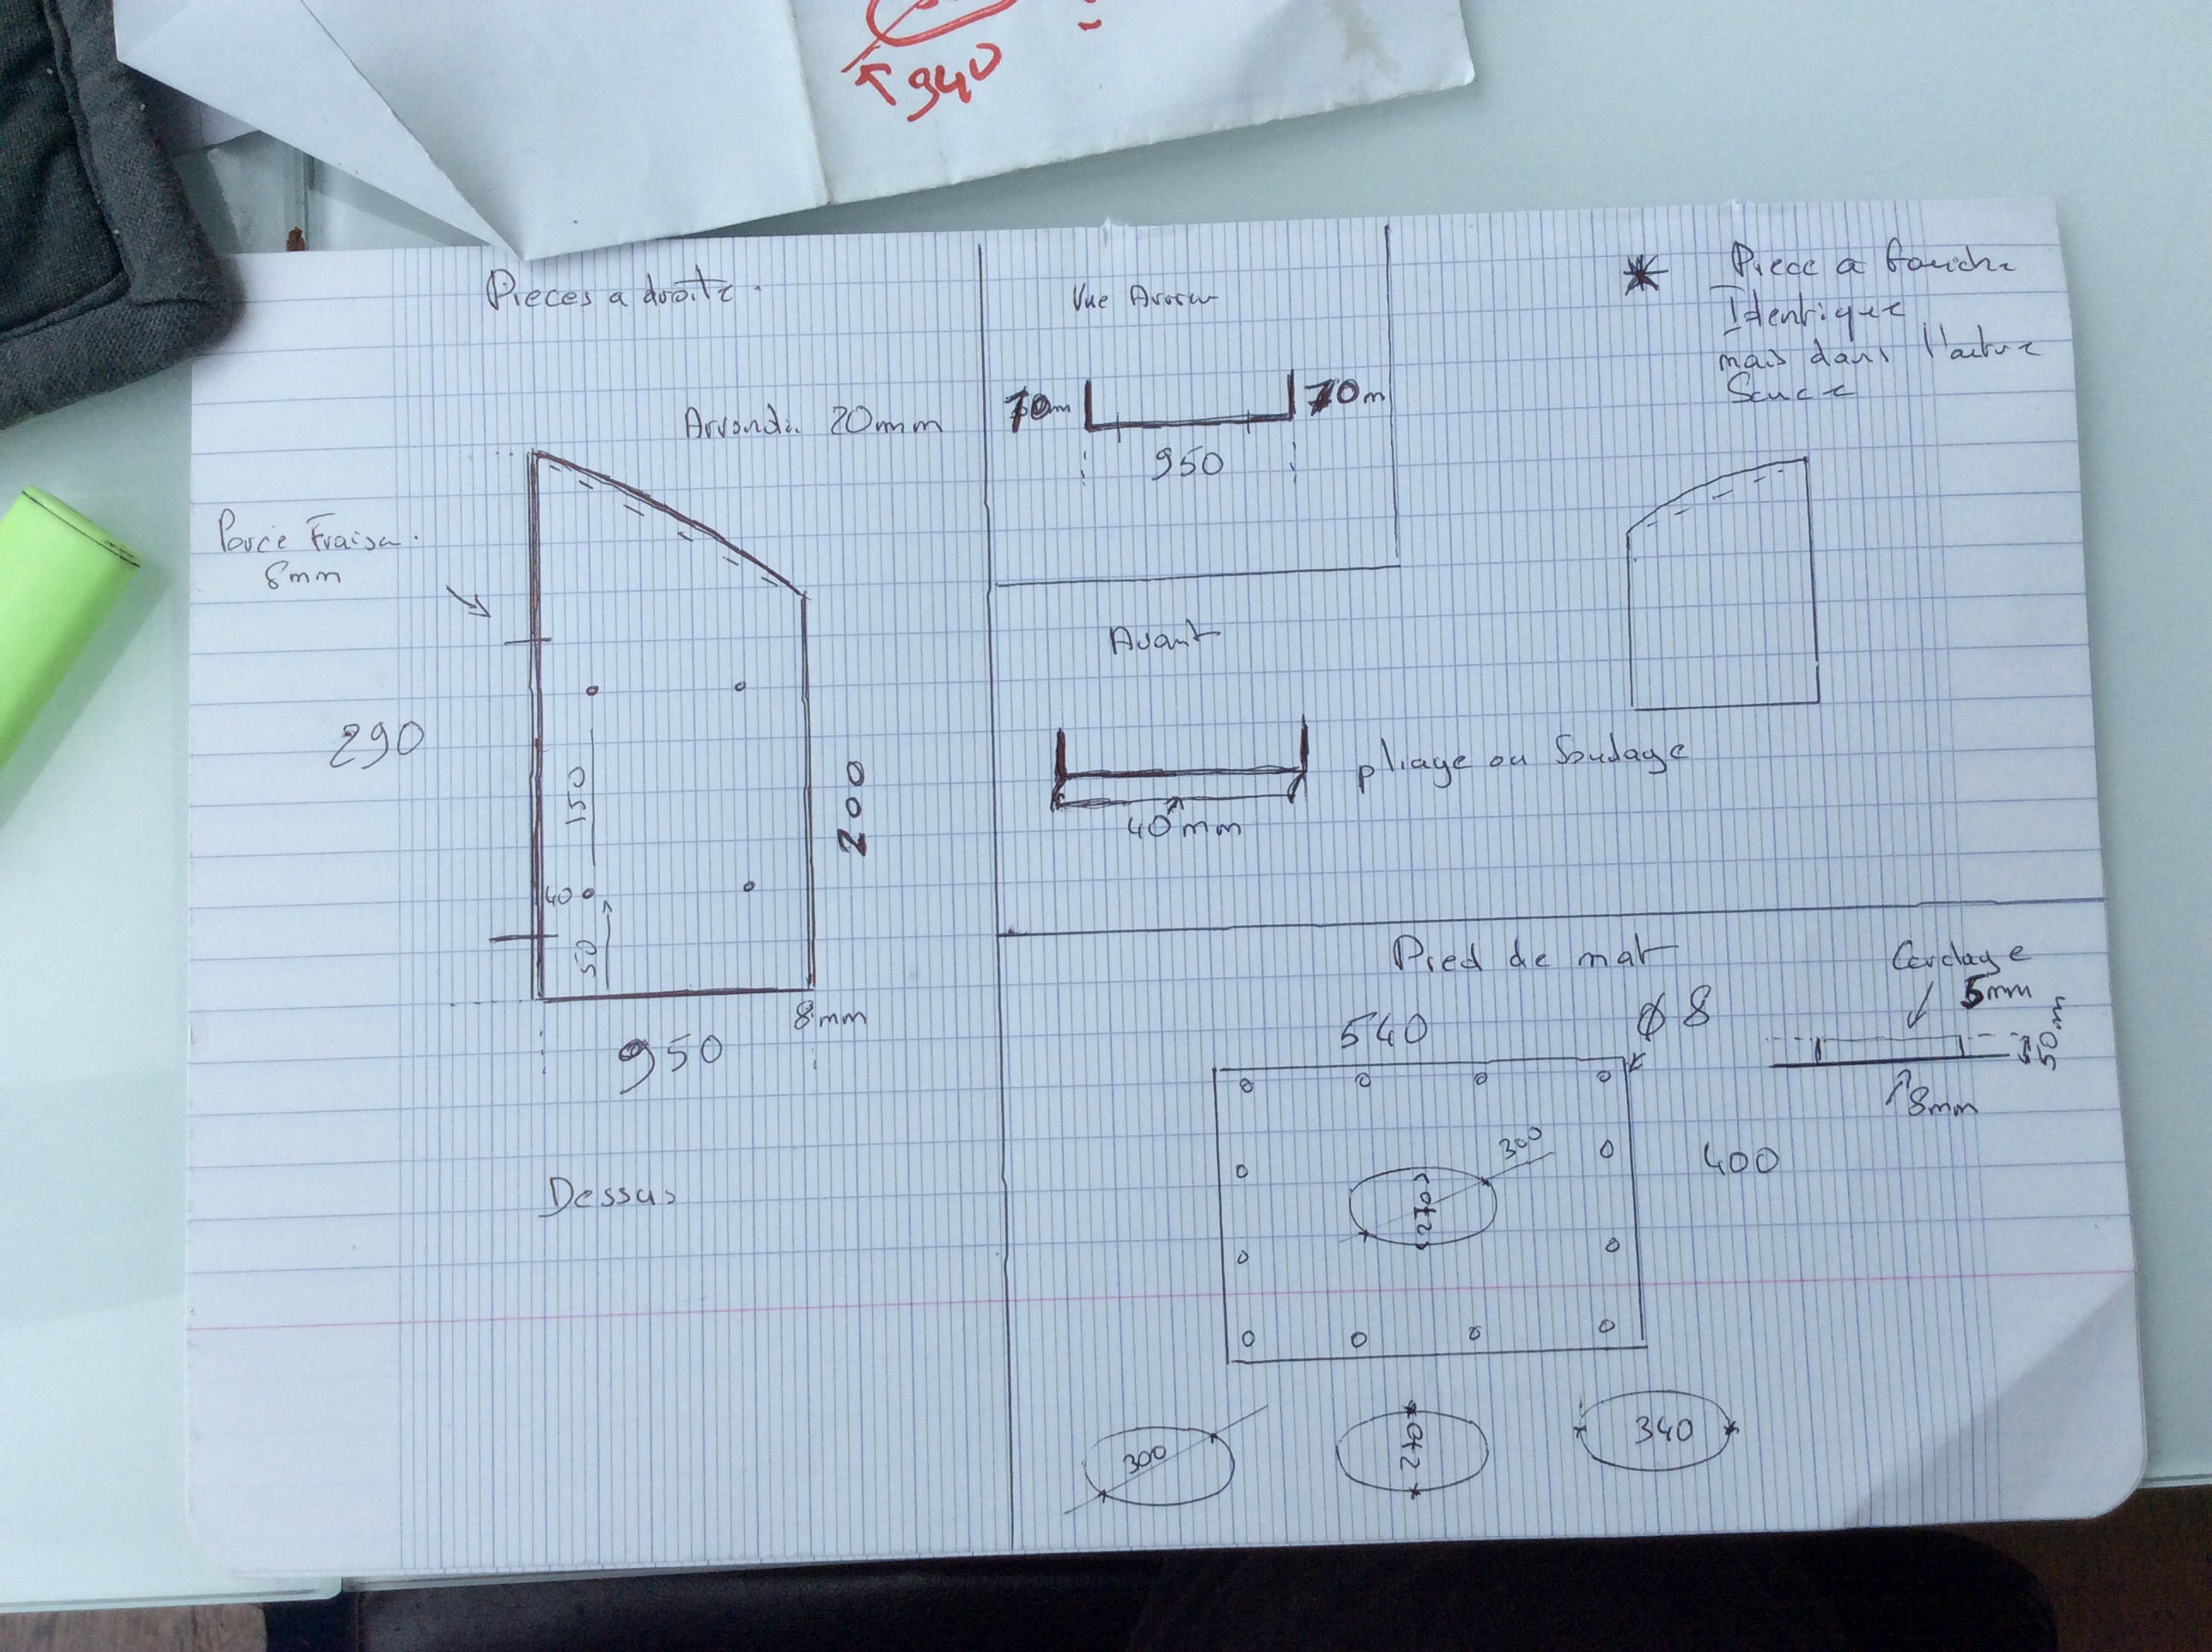 940
Pieces a droite.
Arrondi 20mm
Percé Fraiser.
8mm
290
150
200
40
50
8mm
950
Dessus
Vue Arrier
70m
950
Avant
pliage ou Soudage
40mm
Piece a Gauche
Identique
mais dans l'autre
Sence
Pied de mat
540
ø 8
300
270
400
Cerclage
5mm
50m
8mm
300
270
340